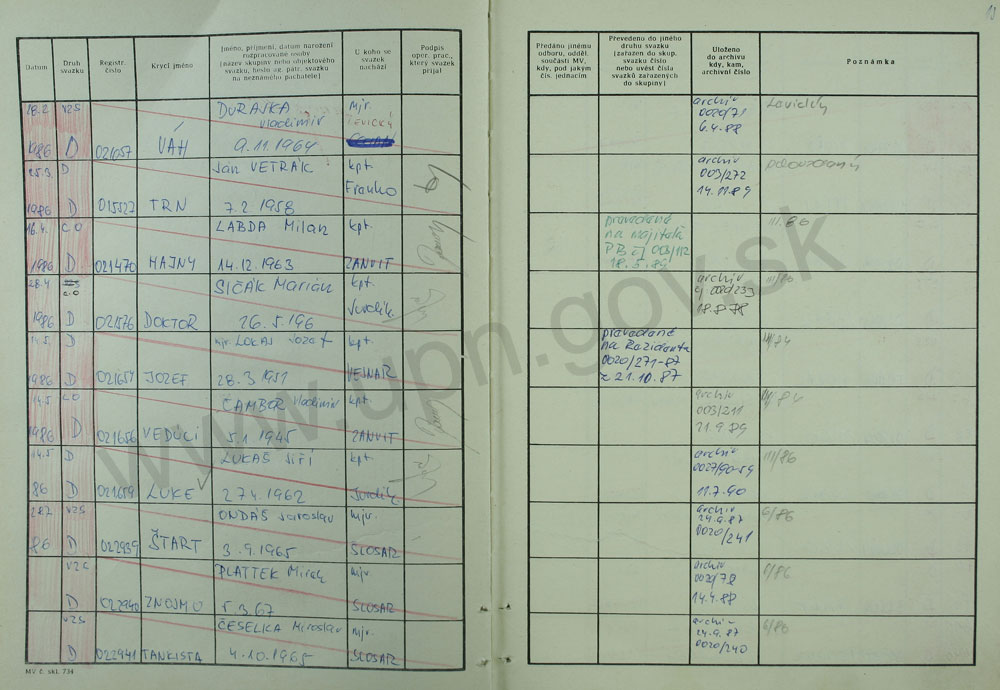 Datum
Druh svazku
Registr. číslo
Krycí jméno
Jméno, příjmení, datum narození rozpracované osoby (název skupiny nebo objektového svazku, heslo ag. pátr. svazku na neznámého pachatele)
U koho se svazek nachází
Podpis oper. prac., který svazek přijal
Předáno jinému odboru, odděl. součásti MV, kdy, pod jakým čís. jednacím
Převedeno do jiného druhu svazku (zařazen do skup. svazku číslo nebo uvést čísla svazků zařazených do skupiny)
Uloženo do archivu kdy, kam, archivní číslo
Poznámka
28.2 VZS DURAJKA Vladimír Mjr. LEVICKÝ
1986 D 021057 VÁH 9.11.1964
archiv 0020/71 6.4.88
25.3 D Jan VETRÁK kpt. Franko
1986 D 015527 TRN 7.2.1958
archiv 003/272 14.11.89
16.4. CO LABDA Milan kpt.
1986 D 021470 HAJNY 14.12.1963 ZANVIT
prevedené na majiteľa PB čj 003/112 18.5.89
III/86
28.4 SIČÁK Marian kpt.
1986 D 021576 DOKTOR 26.5.196 Jurdík
archiv
III/86
14.5 mjr. LUKAS Jozef kpt.
1986 D 021657 JOZEF 28.3.1951 VEJNAR
prevedené na Rezidenta 0020/271-87 z 21.10.87
14.5 CO ČAMBOR Vladimír kpt.
1986 D 021656 VEDÚCI 5.1.1945 ZANVIT
archiv 003/211 21.9.89
14.5 D LUKAŠ JIŘÍ kpt.
86 D 021659 LUKE 27.4.1962 Jurdík
archiv 0027/90-59 11.7.90
III/86
28.7 VZS ONDÁŠ Jaroslav mjr.
86 D 022939 ŠTART 3.9.1965 SLOSAR
archiv 24.9.87 0020/241
6/86
VZC PLATTEK Mirek mjr.
D 022940 ZNOJMO 5.3.67 SLOSAR
archiv 0020/78 14.4.88
6/86
VZS ČESELKA Miroslav mjr.
D 022941 TANKISTA 4.10.1965 SLOSAR
archiv 24.9.87 0020/240
6/86
MV č. skl. 734
www.upn.gov.sk